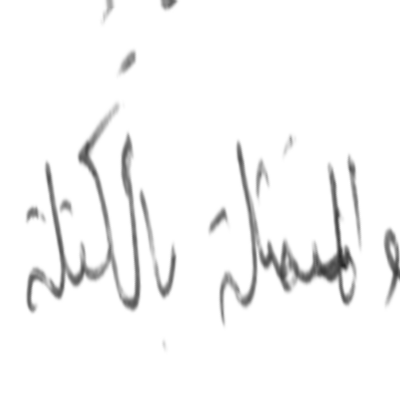 و المتمثلة بالكتلة